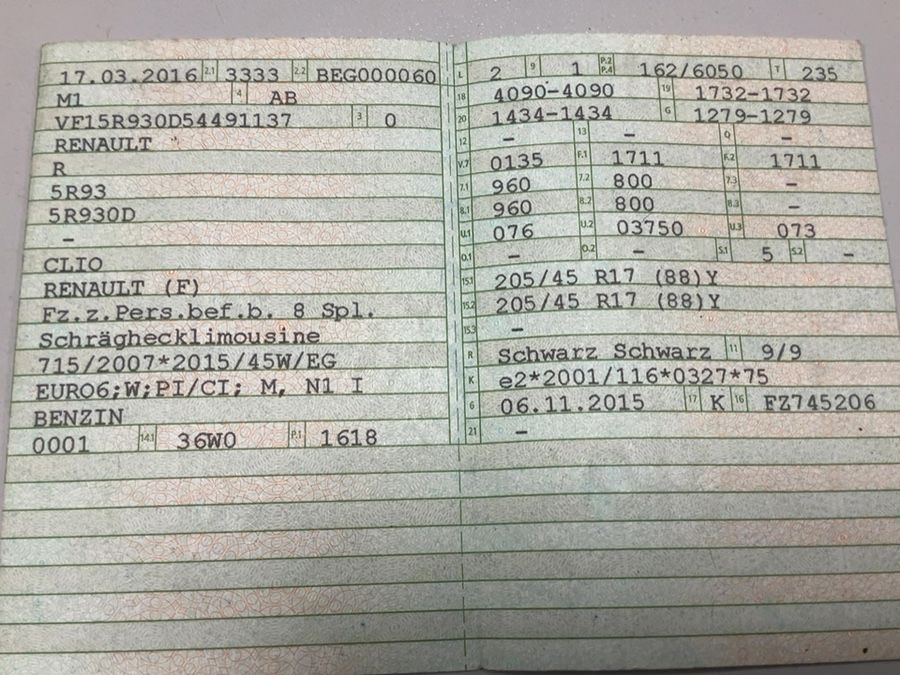 17.03.2016 2.1 3333 2.2 BEG000060
M1 4 AB
VF15R930D54491137 3 0
RENAULT
R
5R93
5R930D
–
CLIO
RENAULT (F)
Fz.z.Pers.bef.b. 8 Spl.
Schräghecklimousine
715/2007*2015/45W/EG
EURO6;W;PI/CI; M, N1 I
BENZIN
0001 14.1 36W0 P.1 1618
L 2 9 1 P.2 P.4 162/6050 T 235
18 4090-4090 19 1732-1732
20 1434-1434 G 1279-1279
12 – 13 – Q –
V.7 0135 F.1 1711 F.2 1711
7.1 960 7.2 800 7.3 –
8.1 960 8.2 800 8.3 –
U.1 076 U.2 03750 U.3 073
O.1 – O.2 – S.1 5 S.2 –
15.1 205/45 R17 (88)Y
15.2 205/45 R17 (88)Y
15.3 –
R Schwarz Schwarz 11 9/9
K e2*2001/116*0327*75
6 06.11.2015 17 K 16 FZ745206
21 –